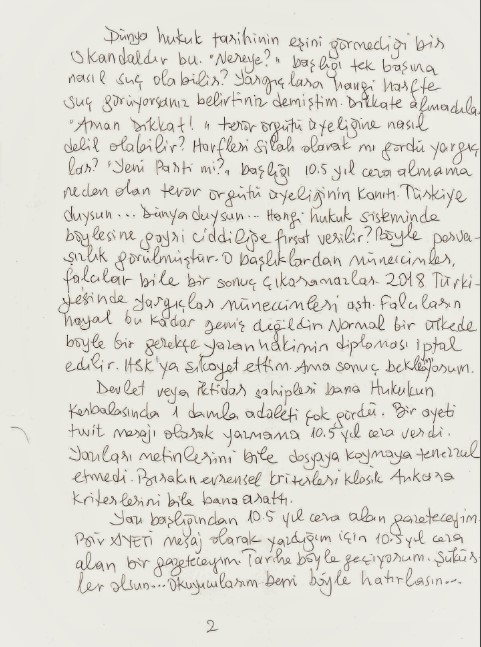 Dünya hukuk tarihinin eşini görmediği bir
skandaldır bu. "Nereye?" başlığı tek başına
nasıl suç olabilir? Yargıçlara hangi harfte
suç görüyorsanız belirtiniz demiştim. Dikkate almadılar.
"Aman Dikkat!" terör örgütü üyeliğine nasıl
delil olabilir? Harfleri silah olarak mı gördü yargıç-
lar? "Yeni Parti mi?" başlığı 10.5 yıl ceza almama
neden olan terör örgütü üyeliğinin kanıtı. Türkiye
duysun... Dünya duysun... Hangi hukuk sisteminde
böylesine gayri ciddiliğe fırsat verilir? Böyle perva-
sızlık görülmüştür. O başlıklardan müneccimler,
falcılar bile bir sonuç çıkaramazlar. 2018 Türki-
yesinde yargıçlar müneccimleri aştı. Falcıların
hayal bu kadar geniş değildir. Normal bir ülkede
böyle bir gerekçe yazan hâkimin diploması iptal
edilir. HSK'ya şikayet ettim. Ama sonuç bekliyorum.
Devlet veya iktidar sahipleri bana Hukukun
Kerbalasında 1 damla adaleti çok gördü. Bir ayeti
twit mesajı olarak yazmama 10.5 yıl ceza verdi.
Yazıları metinlerini bile dosyaya koymaya tenezzül
etmedi. Bırakın evrensel kriterleri klasik Ankara
kriterlerini bile bana arattı.
Yazı başlığından 10.5 yıl ceza alan gazeteciyim.
Bir AYETİ mesaj olarak yazdığım için 10.5 yıl ceza
alan bir gazeteciyim. Tarihe böyle geçiyorum. Şükür-
ler olsun... Okuyucularım beni böyle hatırlasın...
2